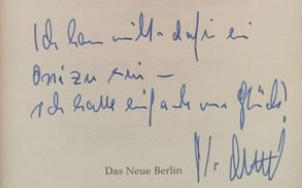 Ich kann nichts dafür ein
zu sein –
ich hatte einfach nur Glück!
Das Neue Berlin